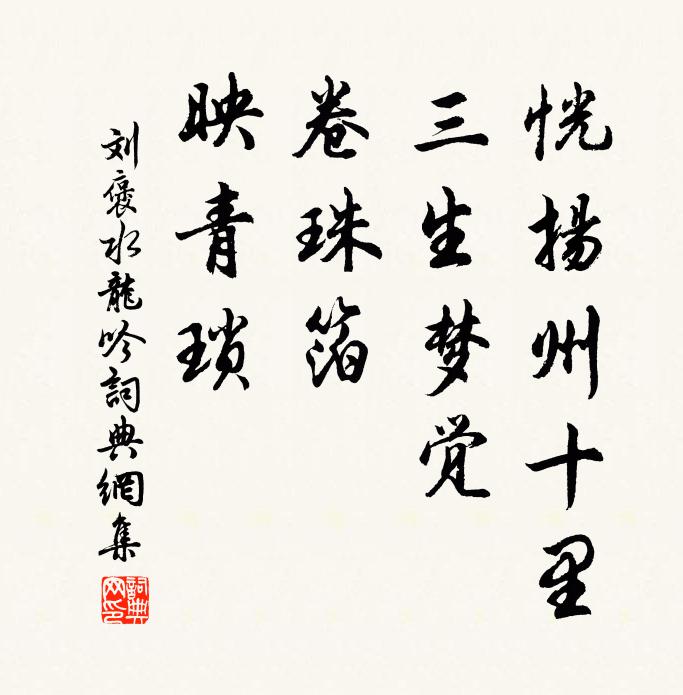 恍揚州十里
三生梦觉
卷珠箔
映青瑣
刘褒水龍吟詞典網集
詞典网印